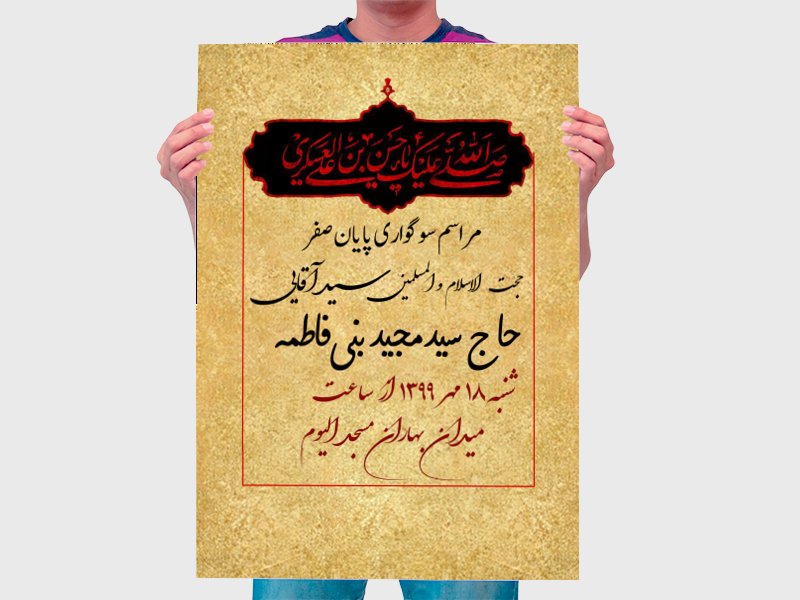 صلی الله علیک یا حسن بن علی العسکری
مراسم سوگواری پایان صفر
حجت الاسلام و المسلمین سید آقایی
حاج سید مجید بنی فاطمه
شنبه ۱۸ مهر ۱۳۹۹ از ساعت
میدان بهاران مسجد الیوم